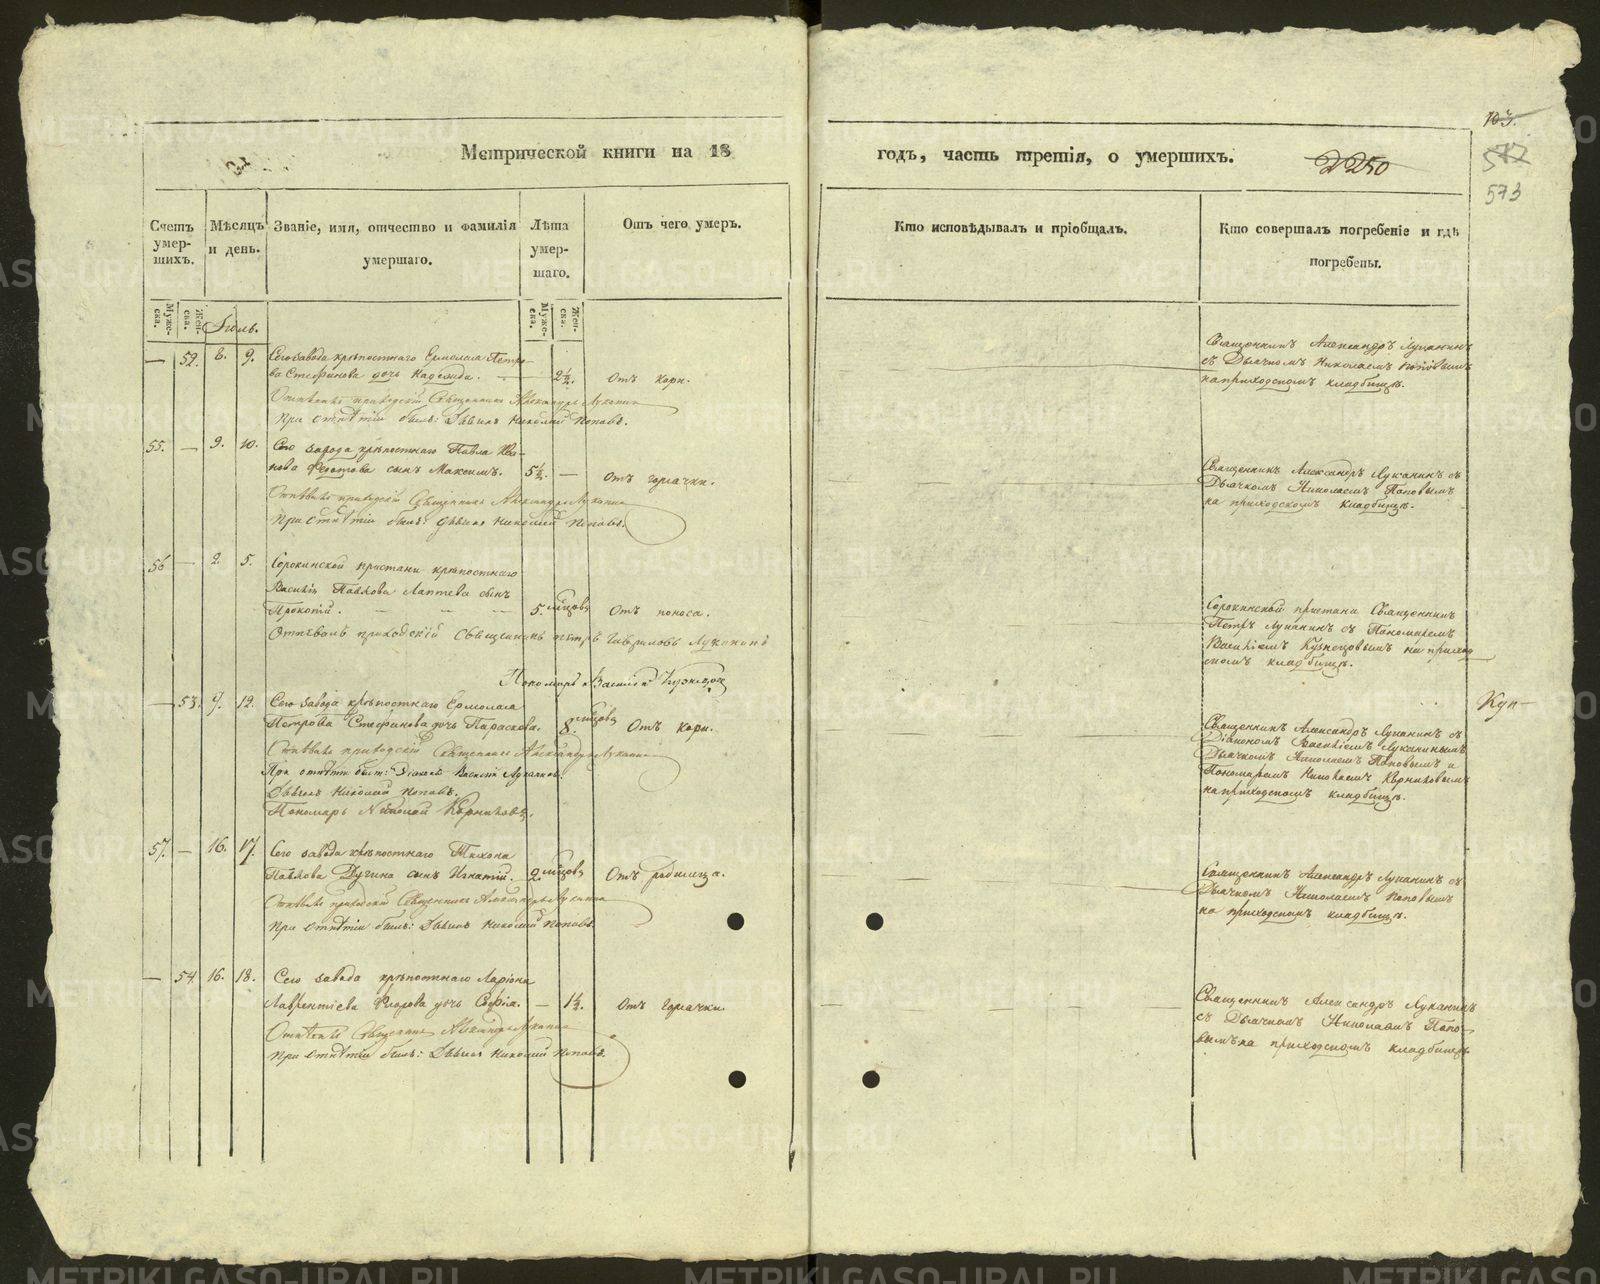 Метрической книги на 18
годъ, часть третія, о умершихъ.
2250
573
Счетъ умер-шихъ.
Мѣсяцъ и день.
Званіе, имя, отчество и фамилія умершаго.
Лѣта умер-шаго.
Отъ чего умеръ.
Кто исповѣдывалъ и пріобщалъ.
Кто совершалъ погребеніе и гдѣ погребены.
Муже-ска.
Жен-ска.
Муже-ска.
Жен-ска.
Іюль.
— 52. 8. 9. Сего завода крѣпостнаго Ермолая Петро-
ва Стефанова дочь Надежда. — 2½. Отъ кори.
Отпѣвалъ приходскій Священникъ Александръ Луканин
При отпѣтіи былъ: Дьячокъ Николай Поповъ.
Священникъ Александръ Луканинъ
съ Дьячкомъ Николаемъ Поповымъ
на приходскомъ кладбищѣ.
55. — 9. 10. Сего завода крѣпостнаго Павла Ива-
нова Федотова сынъ Максимъ. 5½. — Отъ горячки.
Отпѣвалъ приходскій Священникъ Александръ Луканин
При отпѣтіи былъ: Дьячокъ Николай Поповъ.
Священникъ Александръ Луканинъ съ
Дьячкомъ Николаемъ Поповымъ
на приходскомъ кладбищѣ.
56 — 2. 5. Сорокинской пристани крѣпостнаго
Василія Павлова Лаптева сынъ
Прокопій. 5. мѣсцовъ Отъ поноса.
Отпѣвалъ приходскій Священникъ Петръ Гавриловъ Луканинъ
Пономарь Василій Кузнецов
Сорокинской пристани Священникъ
Петръ Луканинъ съ Пономаремъ
Василіемъ Кузнецовымъ на приход
скомъ кладбищѣ.
— 53. 9. 12. Сего завода крѣпостнаго Ермолая
Петрова Стефанова дочь Параскева. 8. мѣсцовъ Отъ кори.
Отпѣвалъ приходскій Священникъ Александръ Луканин
При отпѣтіи был: Діаконъ Василій Луканинъ.
Дьячокъ Николай Поповъ.
Пономарь Николай Корниковъ.
Куп—
Священникъ Александръ Луканинъ съ
Діакономъ Василіемъ Луканинымъ
Дьячкомъ Николаемъ Поповымъ и
Пономаремъ Николаемъ Корниковымъ
на приходскомъ кладбищѣ.
57. — 16. 17. Сего завода крѣпостнаго Тихона
Павлова Дугина сынъ Игнатій. 2. мѣсцовъ Отъ родимца.
Отпѣвалъ приходскій Священникъ Александръ Луканин
При отпѣтіи былъ: Дьячокъ Николай Поповъ.
Священникъ Александръ Луканинъ съ
Дьячкомъ Николаемъ Поповымъ
на приходскомъ кладбищѣ.
— 54. 16. 18. Сего завода крѣпостнаго Ларіона
Лаврентіева дочь Софія. — 1½. Отъ горячки.
Отпѣвалъ Священникъ Александръ Луканин
При отпѣтіи былъ: Дьячокъ Николай Поповъ.
Священникъ Александръ Луканинъ
съ Дьячкомъ Николаемъ Попо-
вымъ на приходскомъ кладбищѣ
METRIKI.GASO-URAL.RU